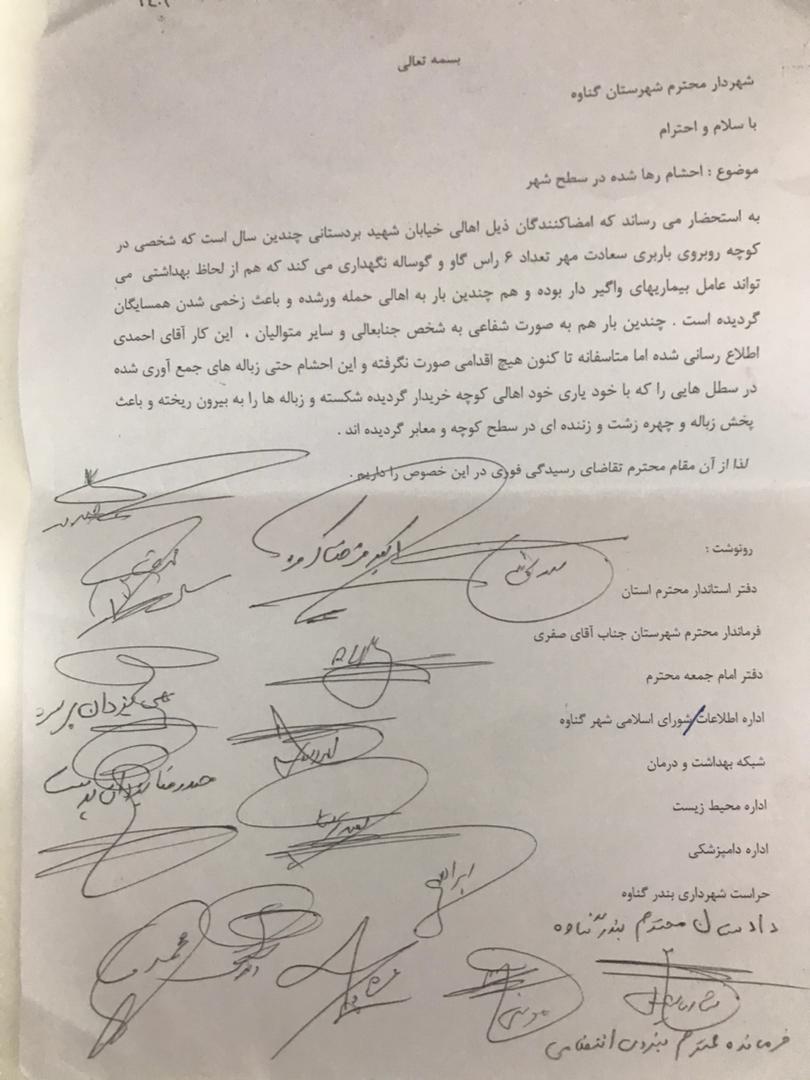 ۱۴۰۲
بسمه تعالی
شهردار محترم شهرستان گناوه
با سلام و احترام
موضوع : احشام رها شده در سطح شهر
به استحضار می رساند که امضاکنندگان ذیل اهالی خیابان شهید بردستانی چندین سال است که شخصی در
کوچه روبروی باربری سعادت مهر تعداد ۶ راس گاو و گوساله نگهداری می کند که هم از لحاظ بهداشتی می
تواند عامل بیماریهای واگیر دار بوده و هم چندین بار به اهالی حمله ورشده و باعث زخمی شدن همسایگان
گردیده است . چندین بار هم به صورت شفاعی به شخص جنابعالی و سایر متوالیان ، این کار آقای احمدی
اطلاع رسانی شده اما متاسفانه تا کنون هیچ اقدامی صورت نگرفته و این احشام حتی زباله های جمع آوری شده
در سطل هایی را که با خود یاری خود اهالی کوچه خریدار گردیده شکسته و زباله ها را به بیرون ریخته و باعث
پخش زباله و چهره زشت و زننده ای در سطح کوچه و معابر گردیده اند .
لذا از آن مقام محترم تقاضای رسیدگی فوری در این خصوص را داریم .
رونوشت :
دفتر استاندار محترم استان
فرماندار محترم شهرستان جناب آقای صفری
دفتر امام جمعه محترم
اداره اطلاعات/شورای اسلامی شهر گناوه
شبکه بهداشت و درمان
اداره محیط زیست
اداره دامپزشکی
حراست شهرداری بندر گناوه
دادستان محترم بندر گناوه
فرمانده محترم نیروی انتظامی